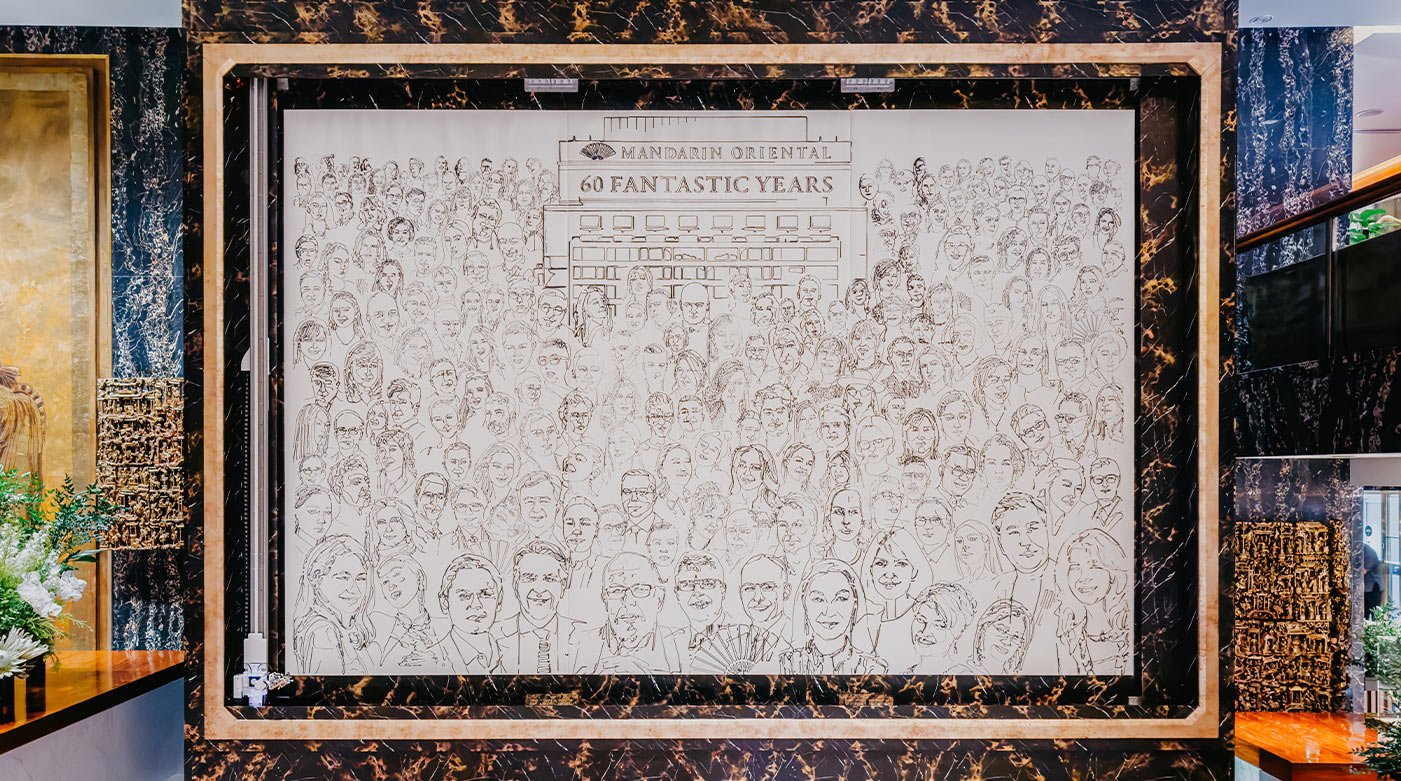 MANDARIN ORIENTAL
60 FANTASTIC YEARS